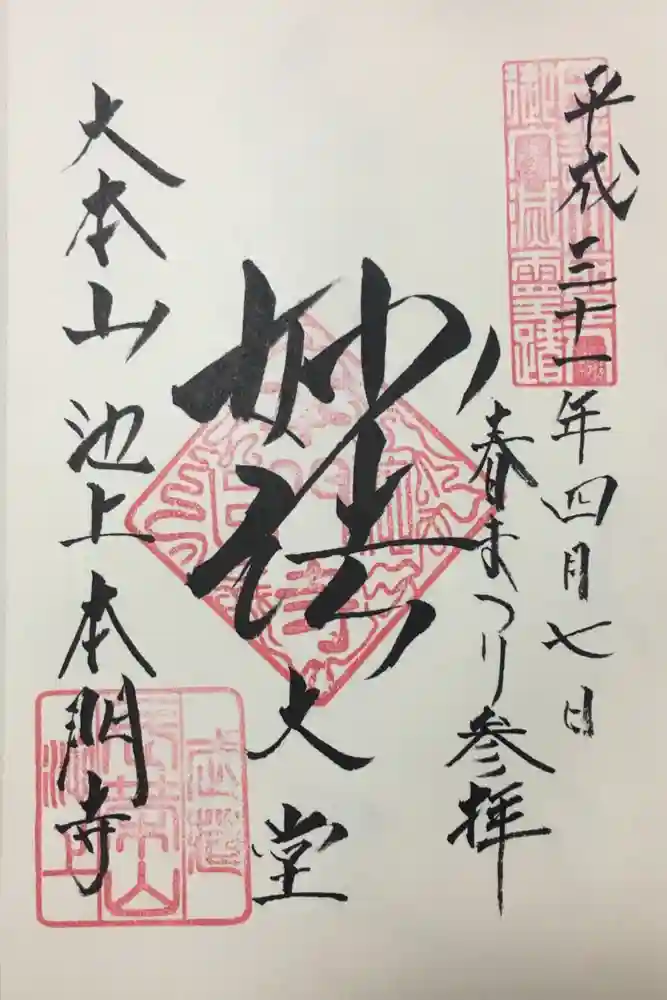 平成三十一年四月七日
春まつり参拝
妙法
大堂
大本山 池上 本門寺
御霊蹟